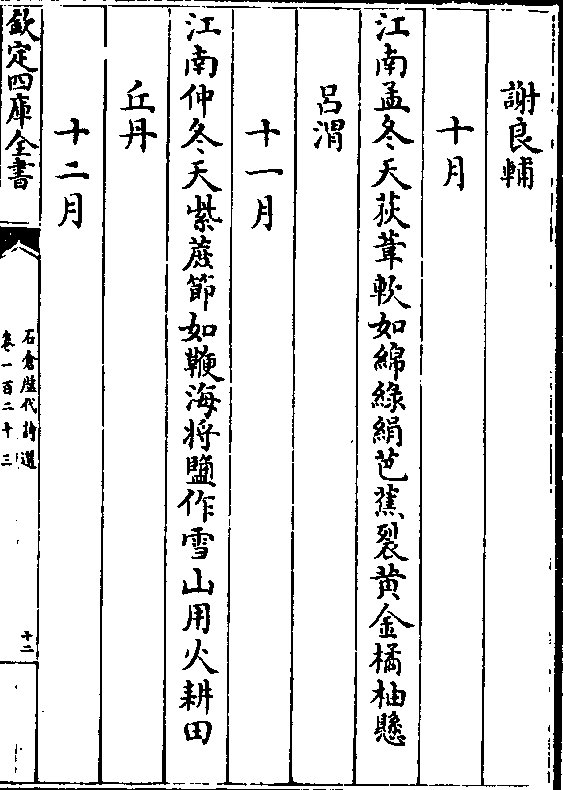 謝良輔
十月
江南孟冬天荻葦軟如綿綠絹芭蕉裂黃金橘柚懸
呂渭
十一月
江南仲冬天紫蔗節如鞭海將鹽作雪山用火耕田
丘丹
十二月
欽定四庫全書
石倉歷代詩選
卷一百二十三
十二